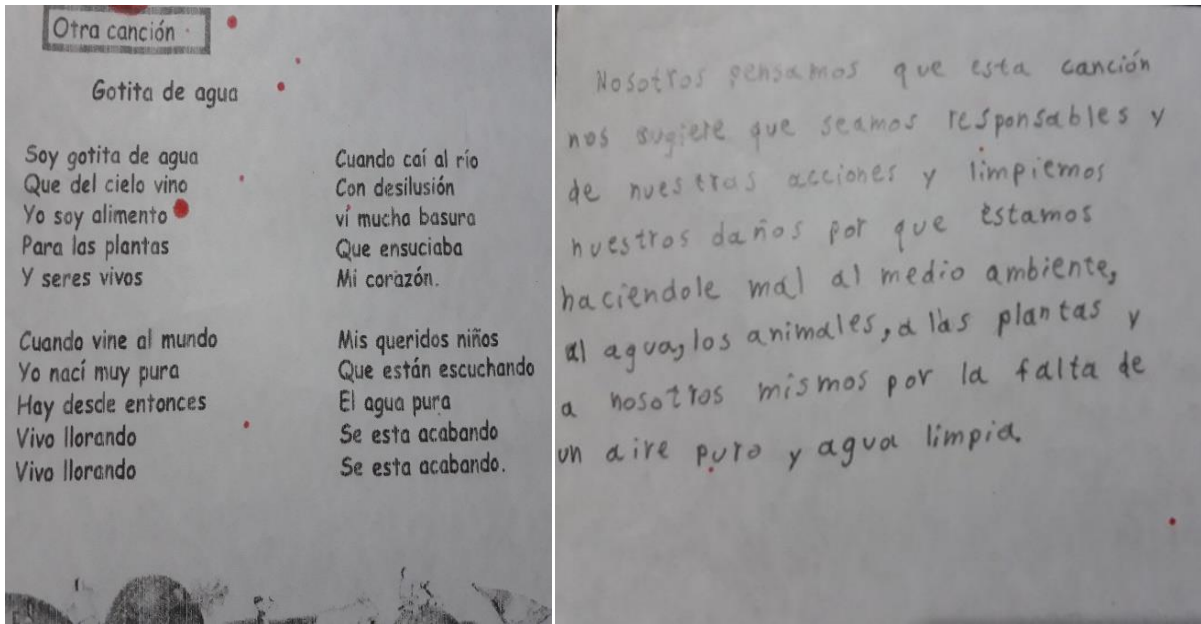 Otra canción
Gotita de agua
Soy gotita de agua
Que del cielo vino
Yo soy alimento
Para las plantas
Y seres vivos
Cuando vine al mundo
Yo nací muy pura
Hay desde entonces
Vivo llorando
Vivo llorando
Cuando caí al río
Con desilusión
ví mucha basura
Que ensuciaba
Mi corazón.
Mis queridos niños
Que están escuchando
El agua pura
Se esta acabando
Se esta acabando.
Nosotros pensamos que esta canción
nos sugiere que seamos responsables y
de nuestras acciones y limpiemos
nuestros daños por que estamos
haciendole mal al medio ambiente,
al agua, los animales, a las plantas y
a nosotros mismos por la falta de
un aire puro y agua limpia.